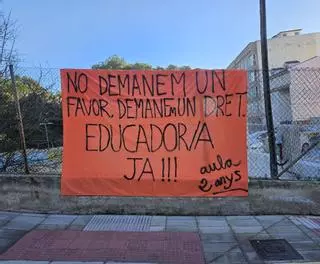 NO DEMANEM UN
FAVOR, DEMANEM UN DRET.
EDUCADOR/A
JA!!!
aula
2 anys